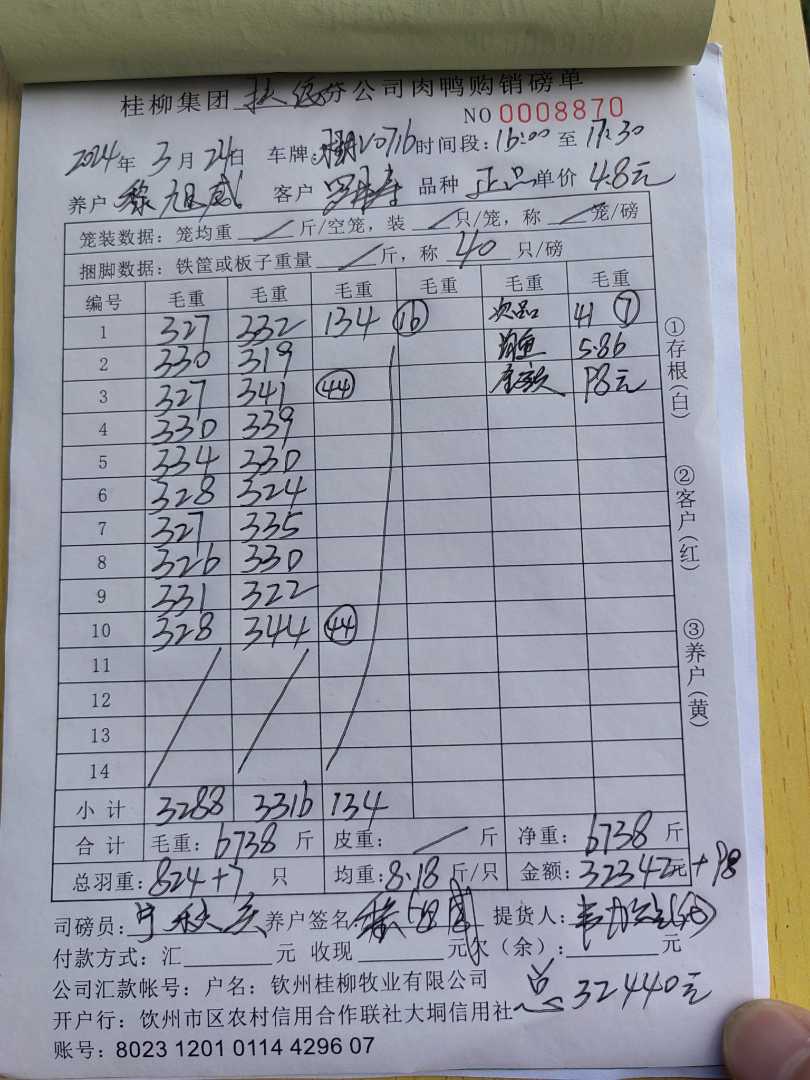 桂柳集团 分公司肉鸭购销磅单
NO 0008870
2024年 3月 24日 车牌: V0716 时间段: 16:00 至 17:30
养户 黎旭威 客户 品种 正品 单价 4.8元
笼装数据: 笼均重 / 斤/空笼, 装 / 只/笼, 称 / 笼/磅
捆脚数据: 铁筐或板子重量 / 斤, 称 40 只/磅
编号 毛重 毛重 毛重 毛重 毛重 毛重
1 327 332 134 ⑯ 次品 41 ⑦
2 330 319 5.86
3 327 341 ㊹ 98元
4 330 339
5 334 330
6 328 324
7 327 335
8 326 330
9 331 322
10 328 344 ㊹
11
12
13
14
小计 3288 3316 134
合计 毛重: 6738 斤 皮重: / 斤 净重: 6738 斤
总羽重: 824+7 只 均重: 8.18 斤/只 金额: 32342元+98
司磅员: 养户签名: 提货人:
付款方式: 汇 元 收现 元欠(余): 元
公司汇款帐号: 户名: 钦州桂柳牧业有限公司
总 32440元
开户行: 钦州市区农村信用合作联社大垌信用社
账号: 8023 1201 0114 4296 07
①存根(白)
②客户(红)
③养户(黄)